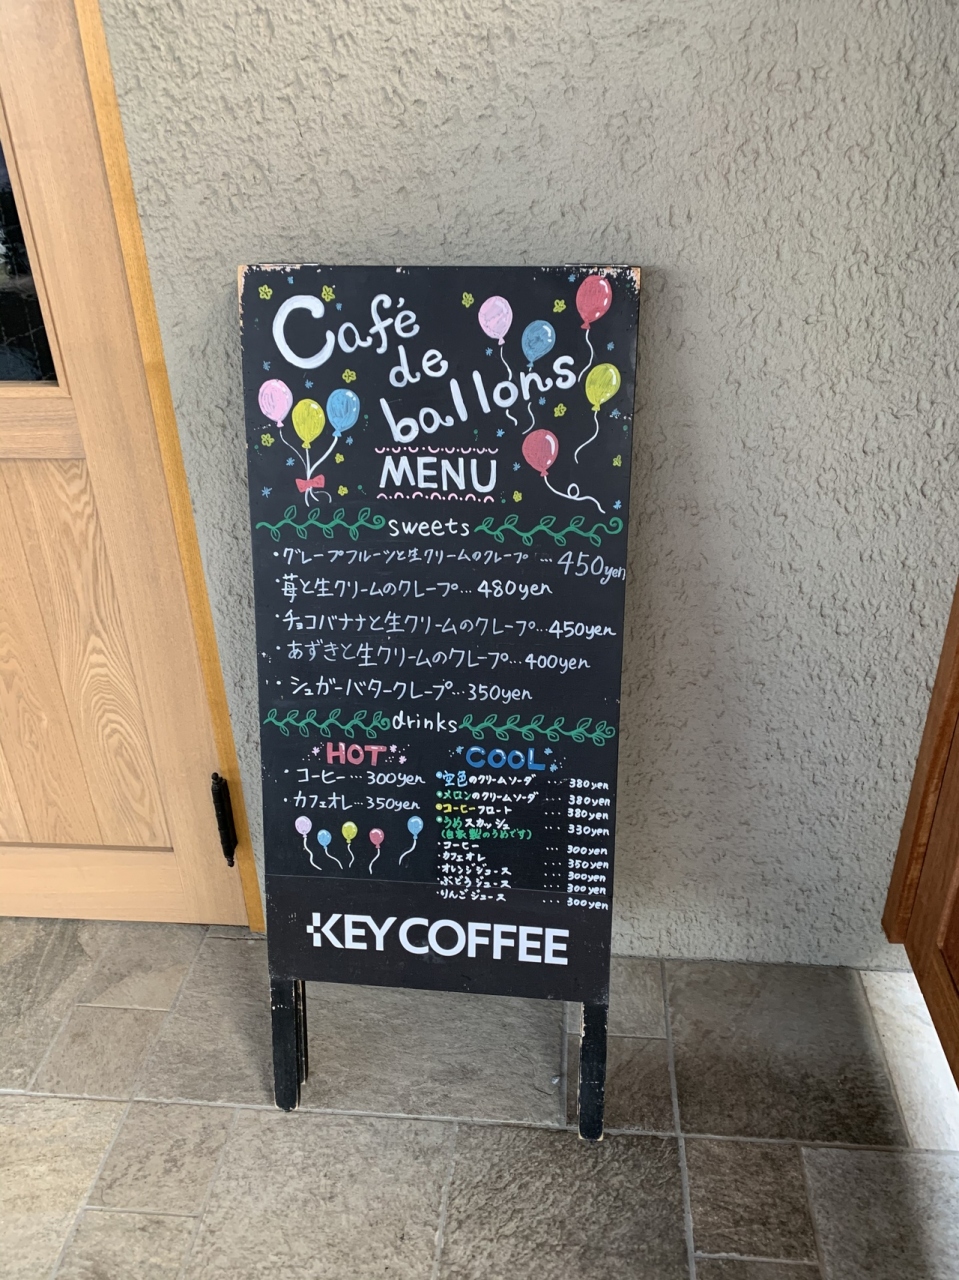 Café
de
ballons
MENU
sweets
・グレープフルーツと生クリームのクレープ…450yen
・苺と生クリームのクレープ…480yen
・チョコバナナと生クリームのクレープ…450yen
・あずきと生クリームのクレープ…400yen
・シュガーバタークレープ…350yen
drinks
HOT
・コーヒー…300yen
・カフェオレ…350yen
COOL
・空色のクリームソーダ…380yen
・メロンのクリームソーダ…380yen
・コーヒーフロート…380yen
・うめスカッシュ…330yen
(自家製のうめです)
・コーヒー…300yen
・カフェオレ…350yen
・オレンジジュース…300yen
・ぶどうジュース…300yen
・りんごジュース…300yen
KEY COFFEE